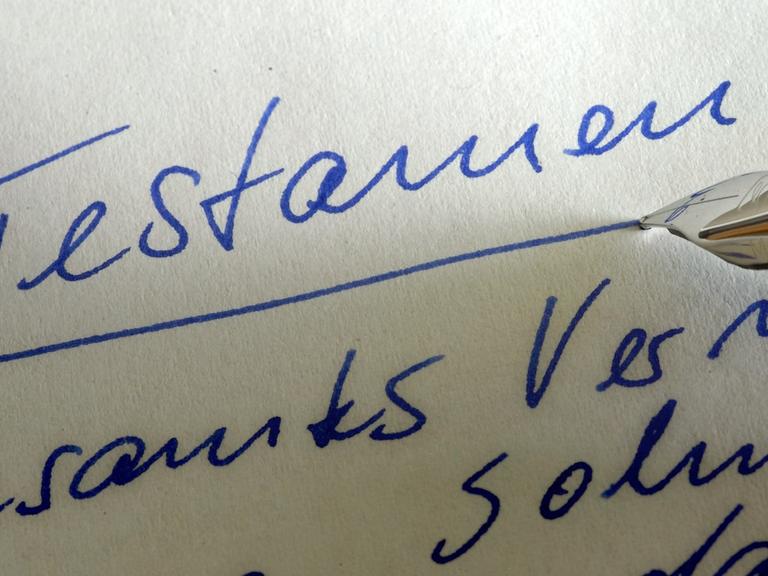 Testamen
samtes Ver
Sohn